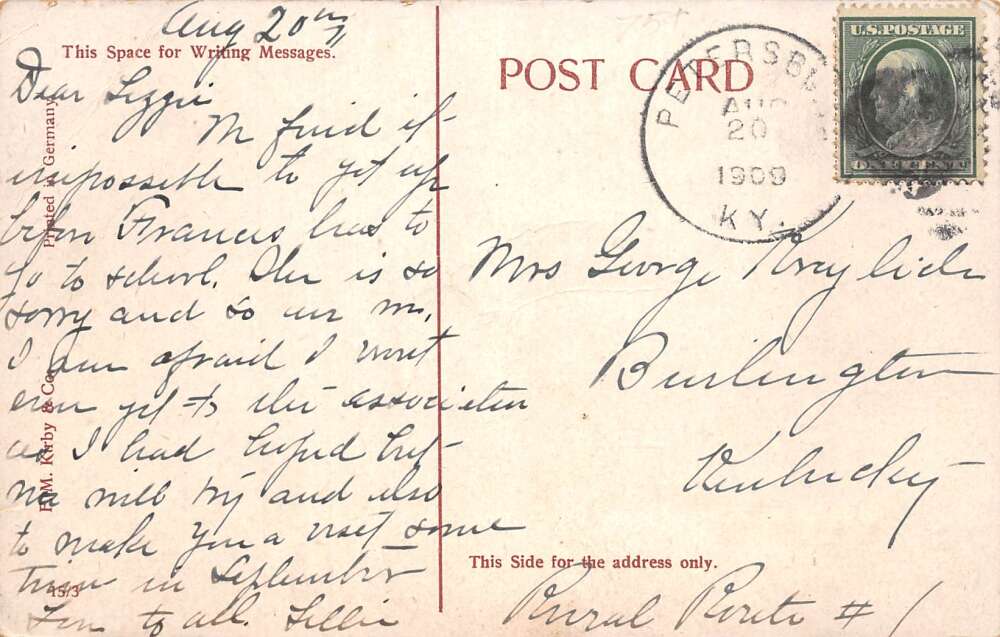 Aug 20th
This Space for Writing Messages.
Dear Lizzie
We find it
impossible to get up
before Frances has to
go to school. She is so
sorry and so are we.
I am afraid I wont
even get to the association
as I had hoped but
we will try and also
to make you a visit some
time in September
Love to all. Lillie
Printed in Germany.
M. Kirby & Co.
15/3
POST CARD
PETERSBU
AUG
20
1909
KY.
U.S. POSTAGE
ONE CENT
Mrs George Kreylich
Burlington
Kentucky
This Side for the address only.
Rural Route # 1